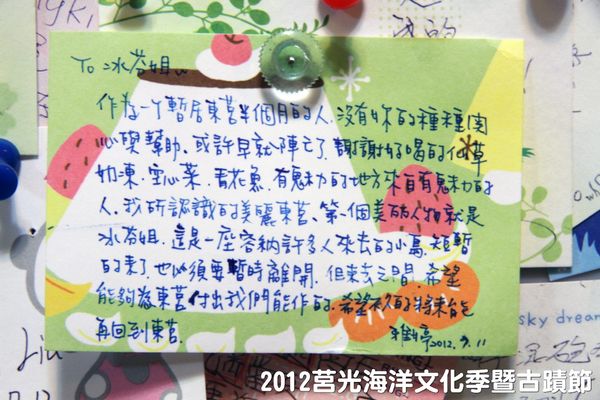 To 冰芬姐
作為一个暫居東莒半個月的人，沒有妳的種種関
心與幫助，或許早就陣亡了，謝謝好喝的仙草
奶凍，空心菜，青花魚，有魅力的地方來自有魅力的
人，我所認識的美麗東莒，第一個美麗人物就是
冰芬姐，這是一座容納許多人來去的小島，短暫
的來了，也必須要暫時離開，但來去之間，希望
能夠為東莒付出我們能作的，希望不久的將來能
再回到東莒．
2012.9.11
sky dream
2012莒光海洋文化季暨古蹟節